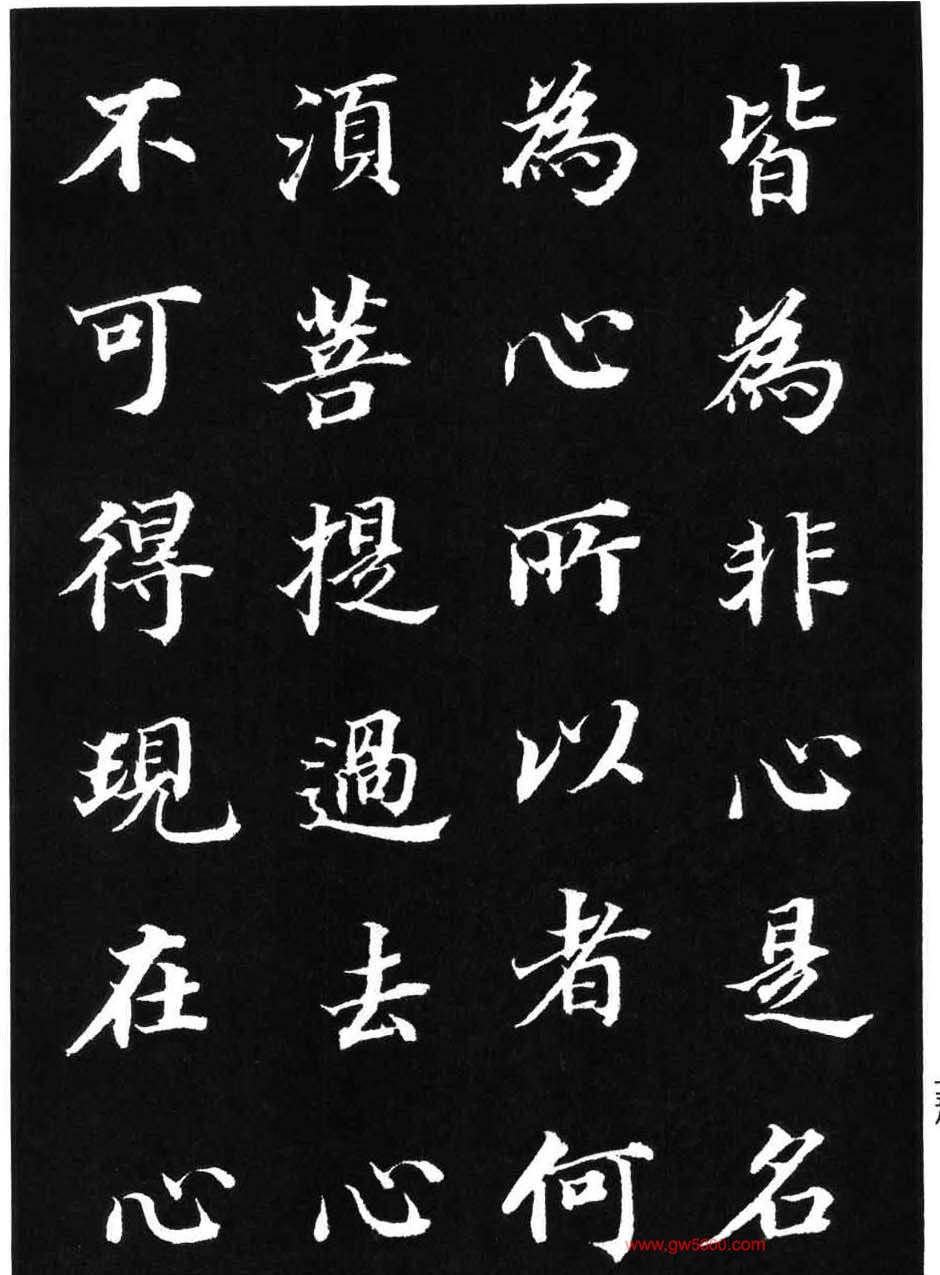 皆為非心是名
為心所以者何
須菩提過去心
不可得現在心
www.gw5600.com